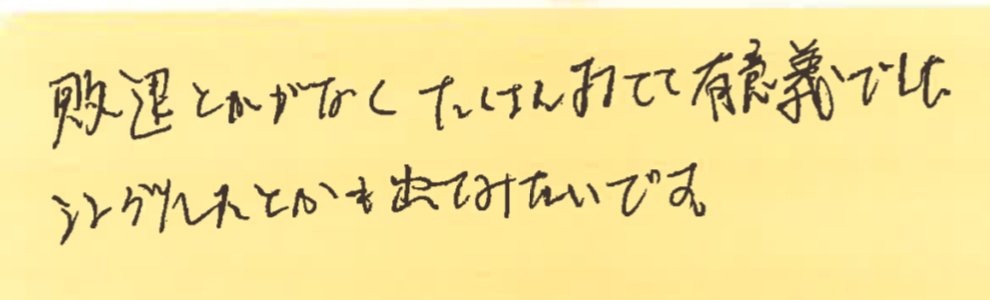 敗退とかがなくたくさん打てて有意義でした
シングルスとかも出てみたいです。